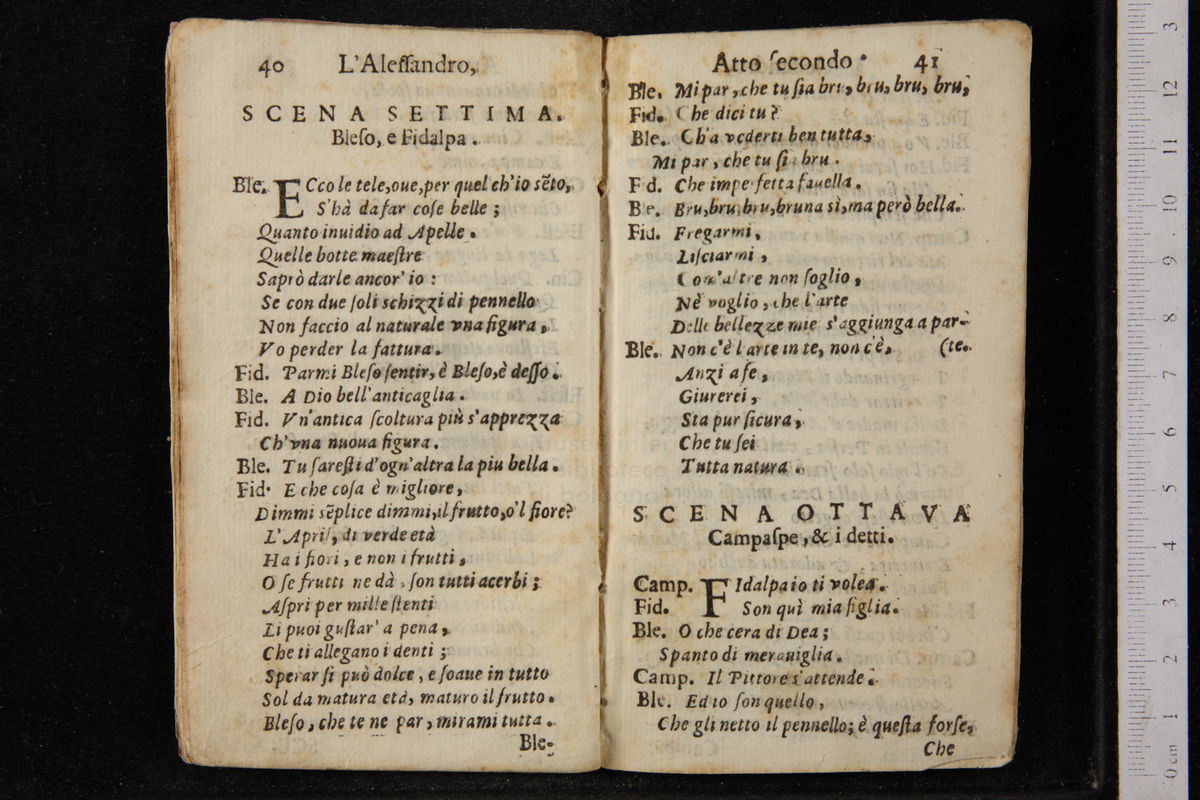 40 L'Aleſſandro,
SCENA SETTIMA.
Bleſo, e Fidalpa.
Ble. ECco le tele, oue, per quel ch'io sẽto,
S'hà da far coſe belle;
Quanto inuidio ad Apelle.
Quelle botte maeſtre
Saprò darle ancor' io:
Se con due ſoli schizzi di pennello
Non faccio al naturale vna figura,
Vo perder la fattura.
Fid. Parmi Bleſo ſentir, è Bleſo, è deſſo.
Ble. A Dio bell'anticaglia.
Fid. Vn'antica ſcoltura più s'apprezza
Ch'vna nuoua figura.
Ble. Tu ſareſti d'ogn'altra la piu bella.
Fid. E che coſa è migliore,
Dimmi sẽplice dimmi, il frutto, o'l fiore?
L'April, di verde età
Ha i fiori, e non i frutti,
O ſe frutti ne dà, ſon tutti acerbi;
Aſpri per mille ſtenti
Li puoi guſtar' a pena,
Che ti allegano i denti;
Sperar ſi può dolce, e ſoaue in tutto
Sol da matura età, maturo il frutto.
Bleſo, che te ne par, mirami tutta.
Ble-
Atto ſecondo. 41
Ble. Mi par, che tu ſia bru, bru, bru, bru,
Fid. Che dici tu?
Ble. Ch'a vederti ben tutta,
Mi par, che tu ſia bru.
Fid. Che imperfetta fauella.
Ble. Bru, bru, bru, bruna sì, ma però bella.
Fid. Fregarmi,
Liſciarmi,
Com'altre non ſoglio,
Nè voglio, che l'arte
Delle bellezze mie s'aggiunga a par-
Ble. Non c'è l'arte in te, non c'è, (te.
Anzi a fe,
Giurerei,
Sta pur ſicura,
Che tu ſei
Tutta natura.
SCENA OTTAVA
Campaſpe, & i detti.
Camp. FIdalpa io ti volea.
Fid. Son quì mia figlia.
Ble. O che cera di Dea;
Spanto di merauiglia.
Camp. Il Pittore s'attende.
Ble. Ed io ſon quello,
Che gli netto il pennello; è queſta forſe,
Che